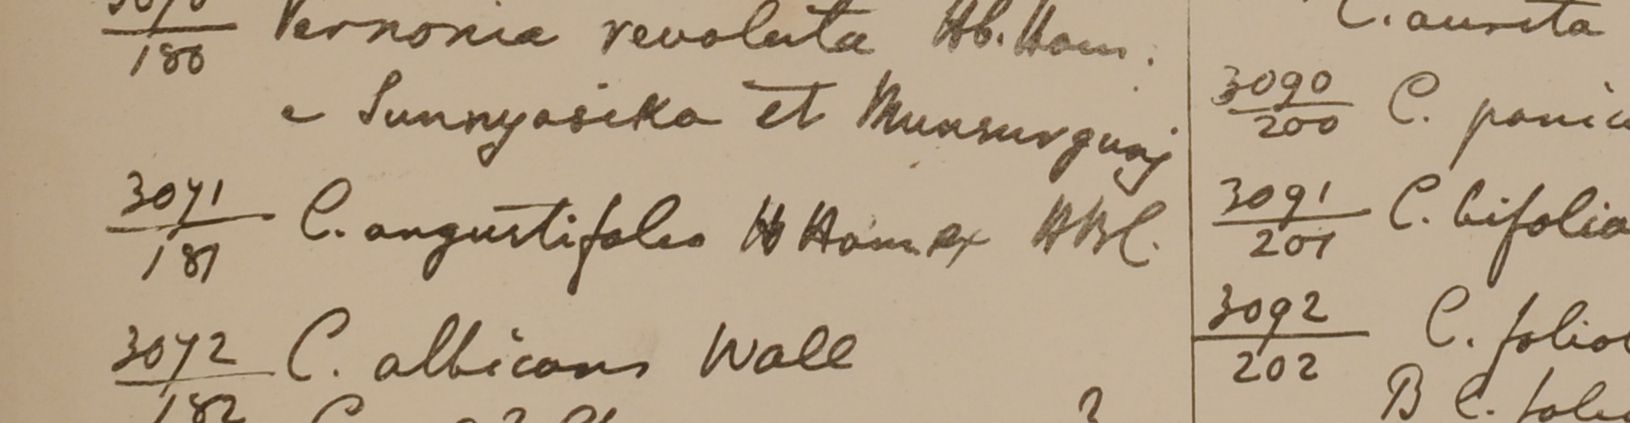 180 Vernonia revoluta Hb. Ham.
e Sunnyasika et Munsurgunj
3071
181 C. angustifolia H Ham ex HBC.
3072
182 C. albicans Wall
C. aurita
3090
200 C. panic
3091
201 C. bifolia
3092
202 C. foliol
B C. folio